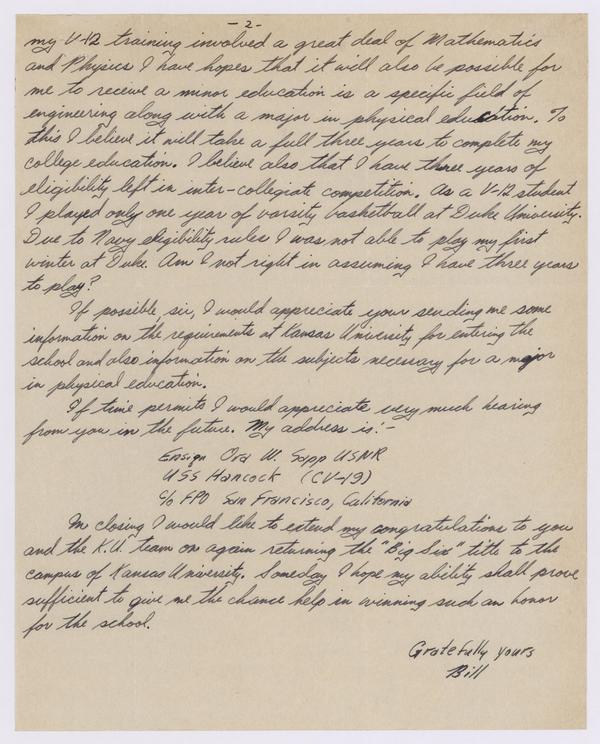 - 2 -
my V-12 training involved a great deal of Mathematics
and Physics I have hopes that it will also be possible for
me to receive a minor education is a specific field of
engineering along with a major in physical education. To
this I believe it will take a full three years to complete my
college education. I believe also that I have three years of
eligibility left in inter-collegiate competition. As a V-12 student
I played only one year of varsity basketball at Duke University.
Due to Navy eligibility rules I was not able to play my first
winter at Duke. Am I not right in assuming I have three years
to play?
If possible, sir, I would appreciate your sending me some
information on the requirements at Kansas University for entering the
school and also information on the subjects necessary for a major
in physical education.
If time permits I would appreciate very much hearing
from you in the future. My address is:-
Ensign Ora W. Sapp USNR
USS Hancock (CV-19)
c/o FPO San Francisco, California
In closing I would like to extend my congratulations to you
and the K.U. team on again returning the "Big Six" title to the
campus of Kansas University. Someday I hope my ability shall prove
sufficient to give me the chance help in winning such an honor
for the school.
Gratefully yours
Bill